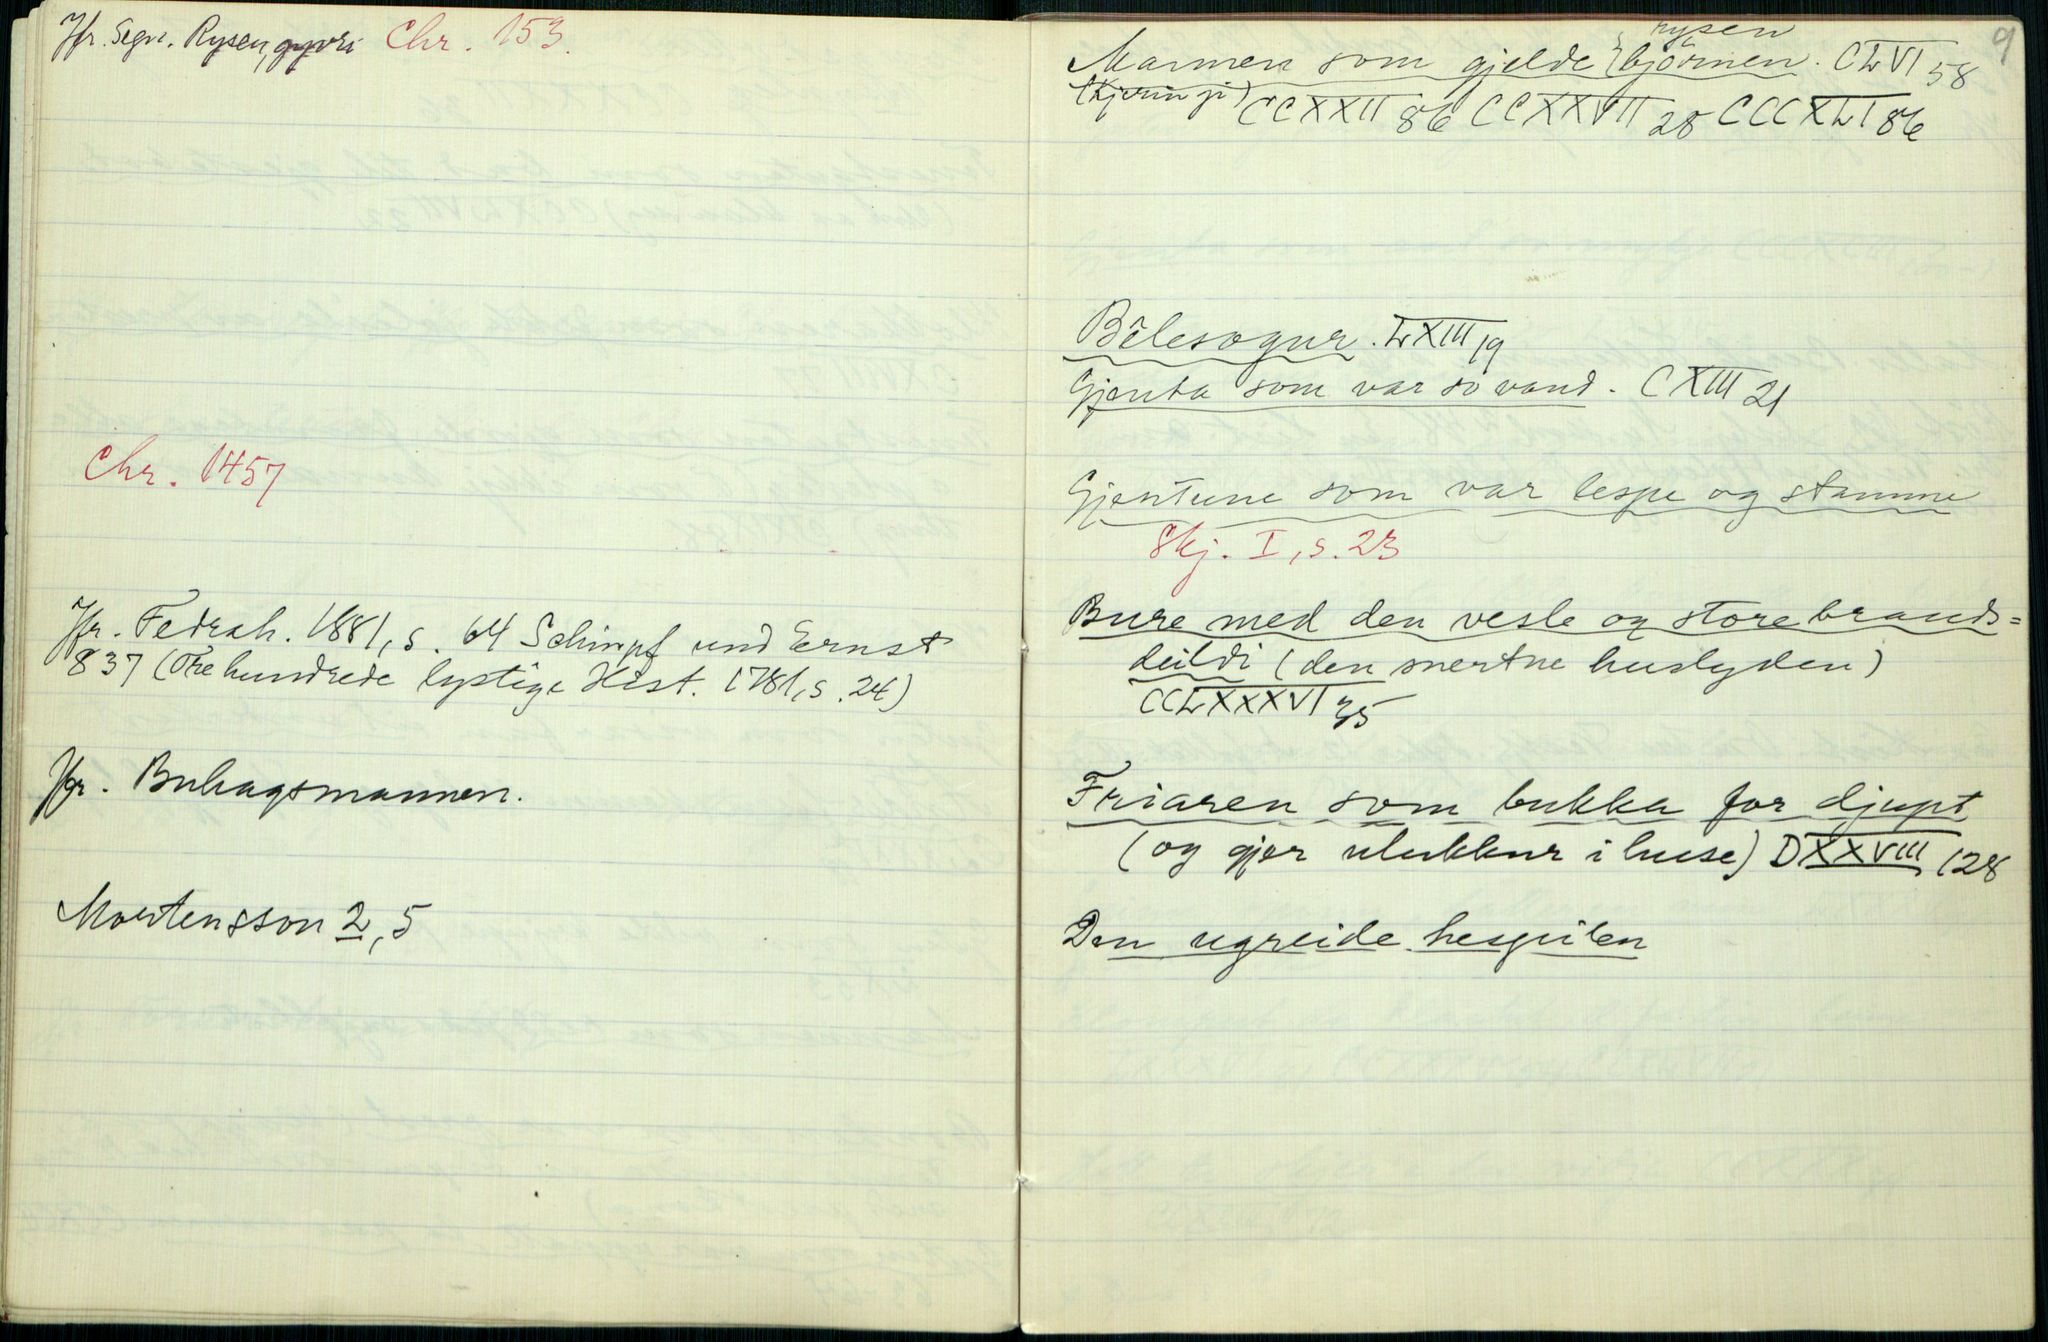 Jfr. Segn. Rysen, gyvri Chr. 153.
Chr. 1457
Jfr. Fedrah. 1881, s. 64 Schimpf und Ernst
837 (Tre hundrede lystige Hist. 1781, s. 24)
Jfr. Buhagsmannen.
Mortensson 2, 5
9
rysen
Mannen som gjelde bjørnen. CLVI 58
(Kjerin gi) CCXXII 86 CCXXVII 28 CCCXLI 86
Bêlesogur. LXIII 19
Gjenta som var so vand. CXIII 21
Gjentune som var lespe og stamme
Skj. I, s. 23
Bure med den vesle og store brands=
deildi (den snertne huslyden)
CCLXXXVI 35
Friaren som bukka for djupt
(og gjer ulukkur i huse) DXXVIII 128
Den ugreide hespilen